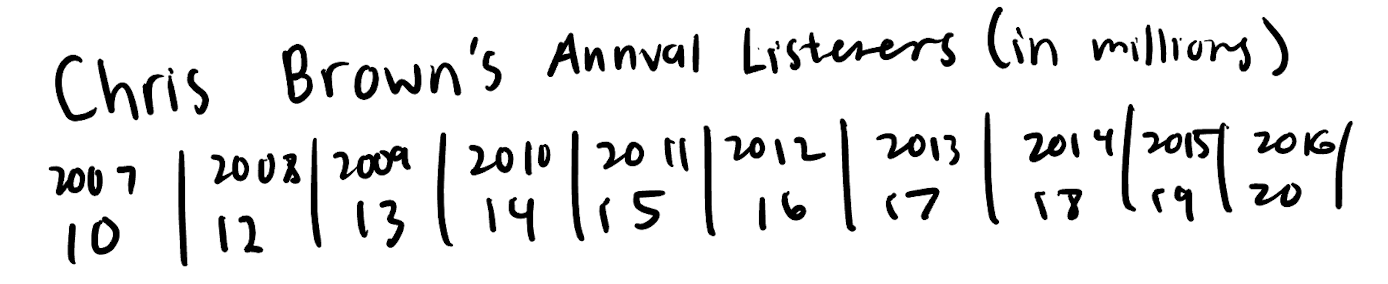 Chris Brown's Annual Listeners (in millions)
2007 | 2008 | 2009 | 2010 | 2011 | 2012 | 2013 | 2014 | 2015 | 2016 |
10 | 12 | 13 | 14 | 15 | 16 | 17 | 18 | 19 | 20 |